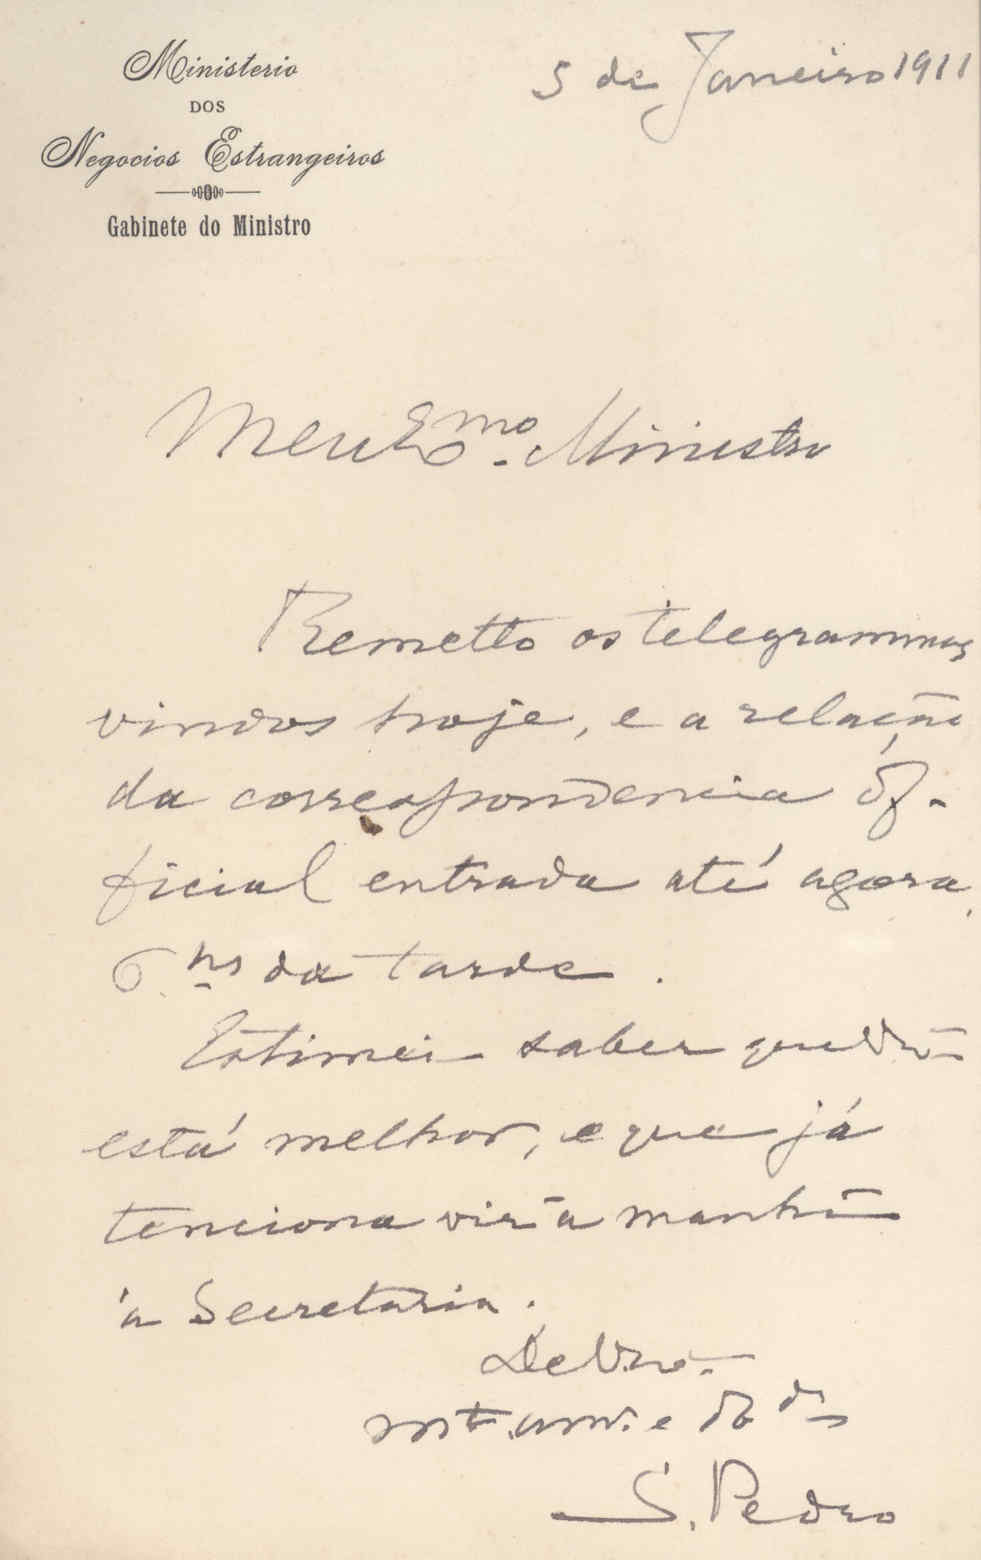 Ministerio
DOS
Negocios Estrangeiros
Gabinete do Ministro
5 de Janeiro 1911
Meu Exmo. Ministro
Remetto os telegrammas
vindos hoje, e a relação
da correspondencia of-
ficial entrada até agora,
6 hs da tarde.
Estimei saber que
está melhor, e que já
tenciona vir àmanhã
à Secretaria.
De
mto. am. e
S. Pedro